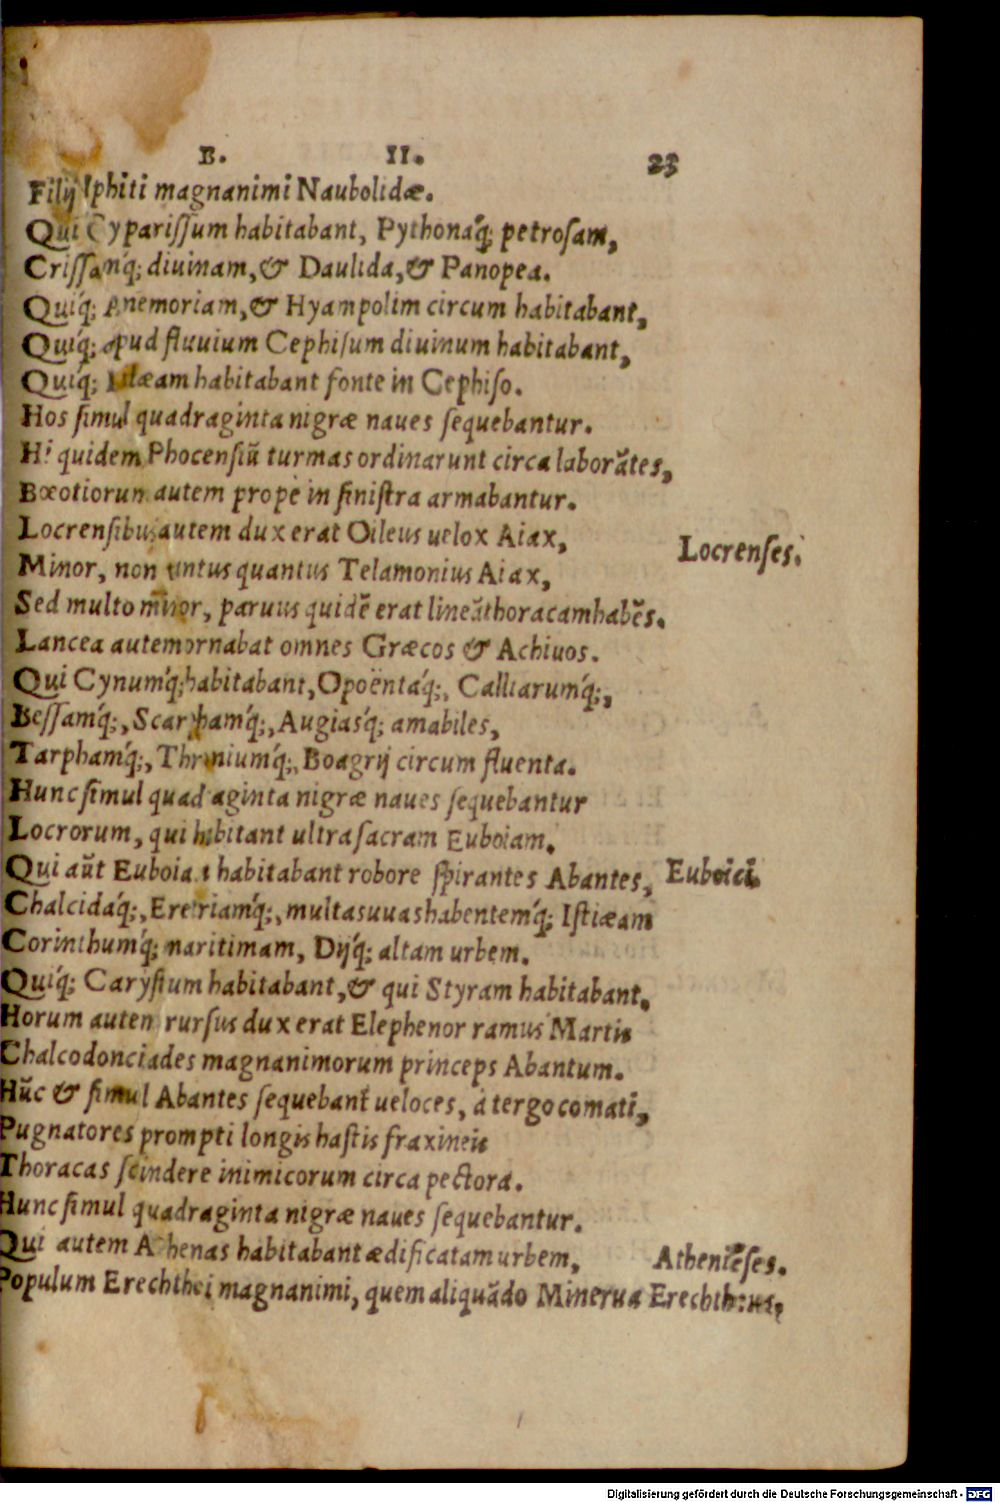 B. II. 23
Filij Iphiti magnanimi Naubolidæ.
Qui Cyparißum habitabant, Pythonáq; petrosam,
Crissanq́; diuinam, & Daulida, & Panopea.
Quiq́; Anemoriam, & Hyampolim circum habitabant,
Quiq́; apud fluuium Cephisum diuinum habitabant,
Quiq́; Lilæam habitabant fonte in Cephiso.
Hos simul quadraginta nigræ naues sequebantur.
Hi quidem Phocensiũ turmas ordinarunt circa laborãtes,
Bœotiorum autem propè in sinistra armabantur.
Locrensibus autem dux erat Oileus uelox Aiax,
Minor, non tantus quantus Telamonius Aiax,
Sed multo minor, paruus quidẽ erat lineã thoracam habẽs.
Lancea autem ornabat omnes Græcos & Achiuos.
Qui Cynumq́; habitabant, Opoëntaq́;, Calliarumq́;,
Bessamq́;, Scarphamq́;, Augiasq́; amabiles,
Tarphamq́;, Throniumq́;, Boagrij circum fluenta.
Hunc simul quadraginta nigræ naues sequebantur
Locrorum, qui habitant ultra sacram Euboiam.
Qui aũt Euboiam habitabant robore spirantes Abantes,
Chalcidaq́;, Eretriamq́;, multas uuas habentemq́; Istiæam
Corinthumq́; maritimam, Dijq́; altam urbem.
Quiq́; Carystum habitabant, & qui Styram habitabant,
Horum autem rursus dux erat Elephenor ramus Martis
Chalcodonciades magnanimorum princeps Abantum.
Hũc & simul Abantes sequebant̃ ueloces, à tergo comati,
Pugnatores prompti longis hastis fraxineis
Thoracas scindere inimicorum circa pectora.
Hunc simul quadraginta nigræ naues sequebantur.
Qui autem Athenas habitabant ædificatam urbem,
Populum Erechthei magnanimi, quem aliquãdo Minerua
Locrenses.
Euboici.
Atheniẽses.
Digitalisierung gefördert durch die Deutsche Forschungsgemeinschaft - DFG